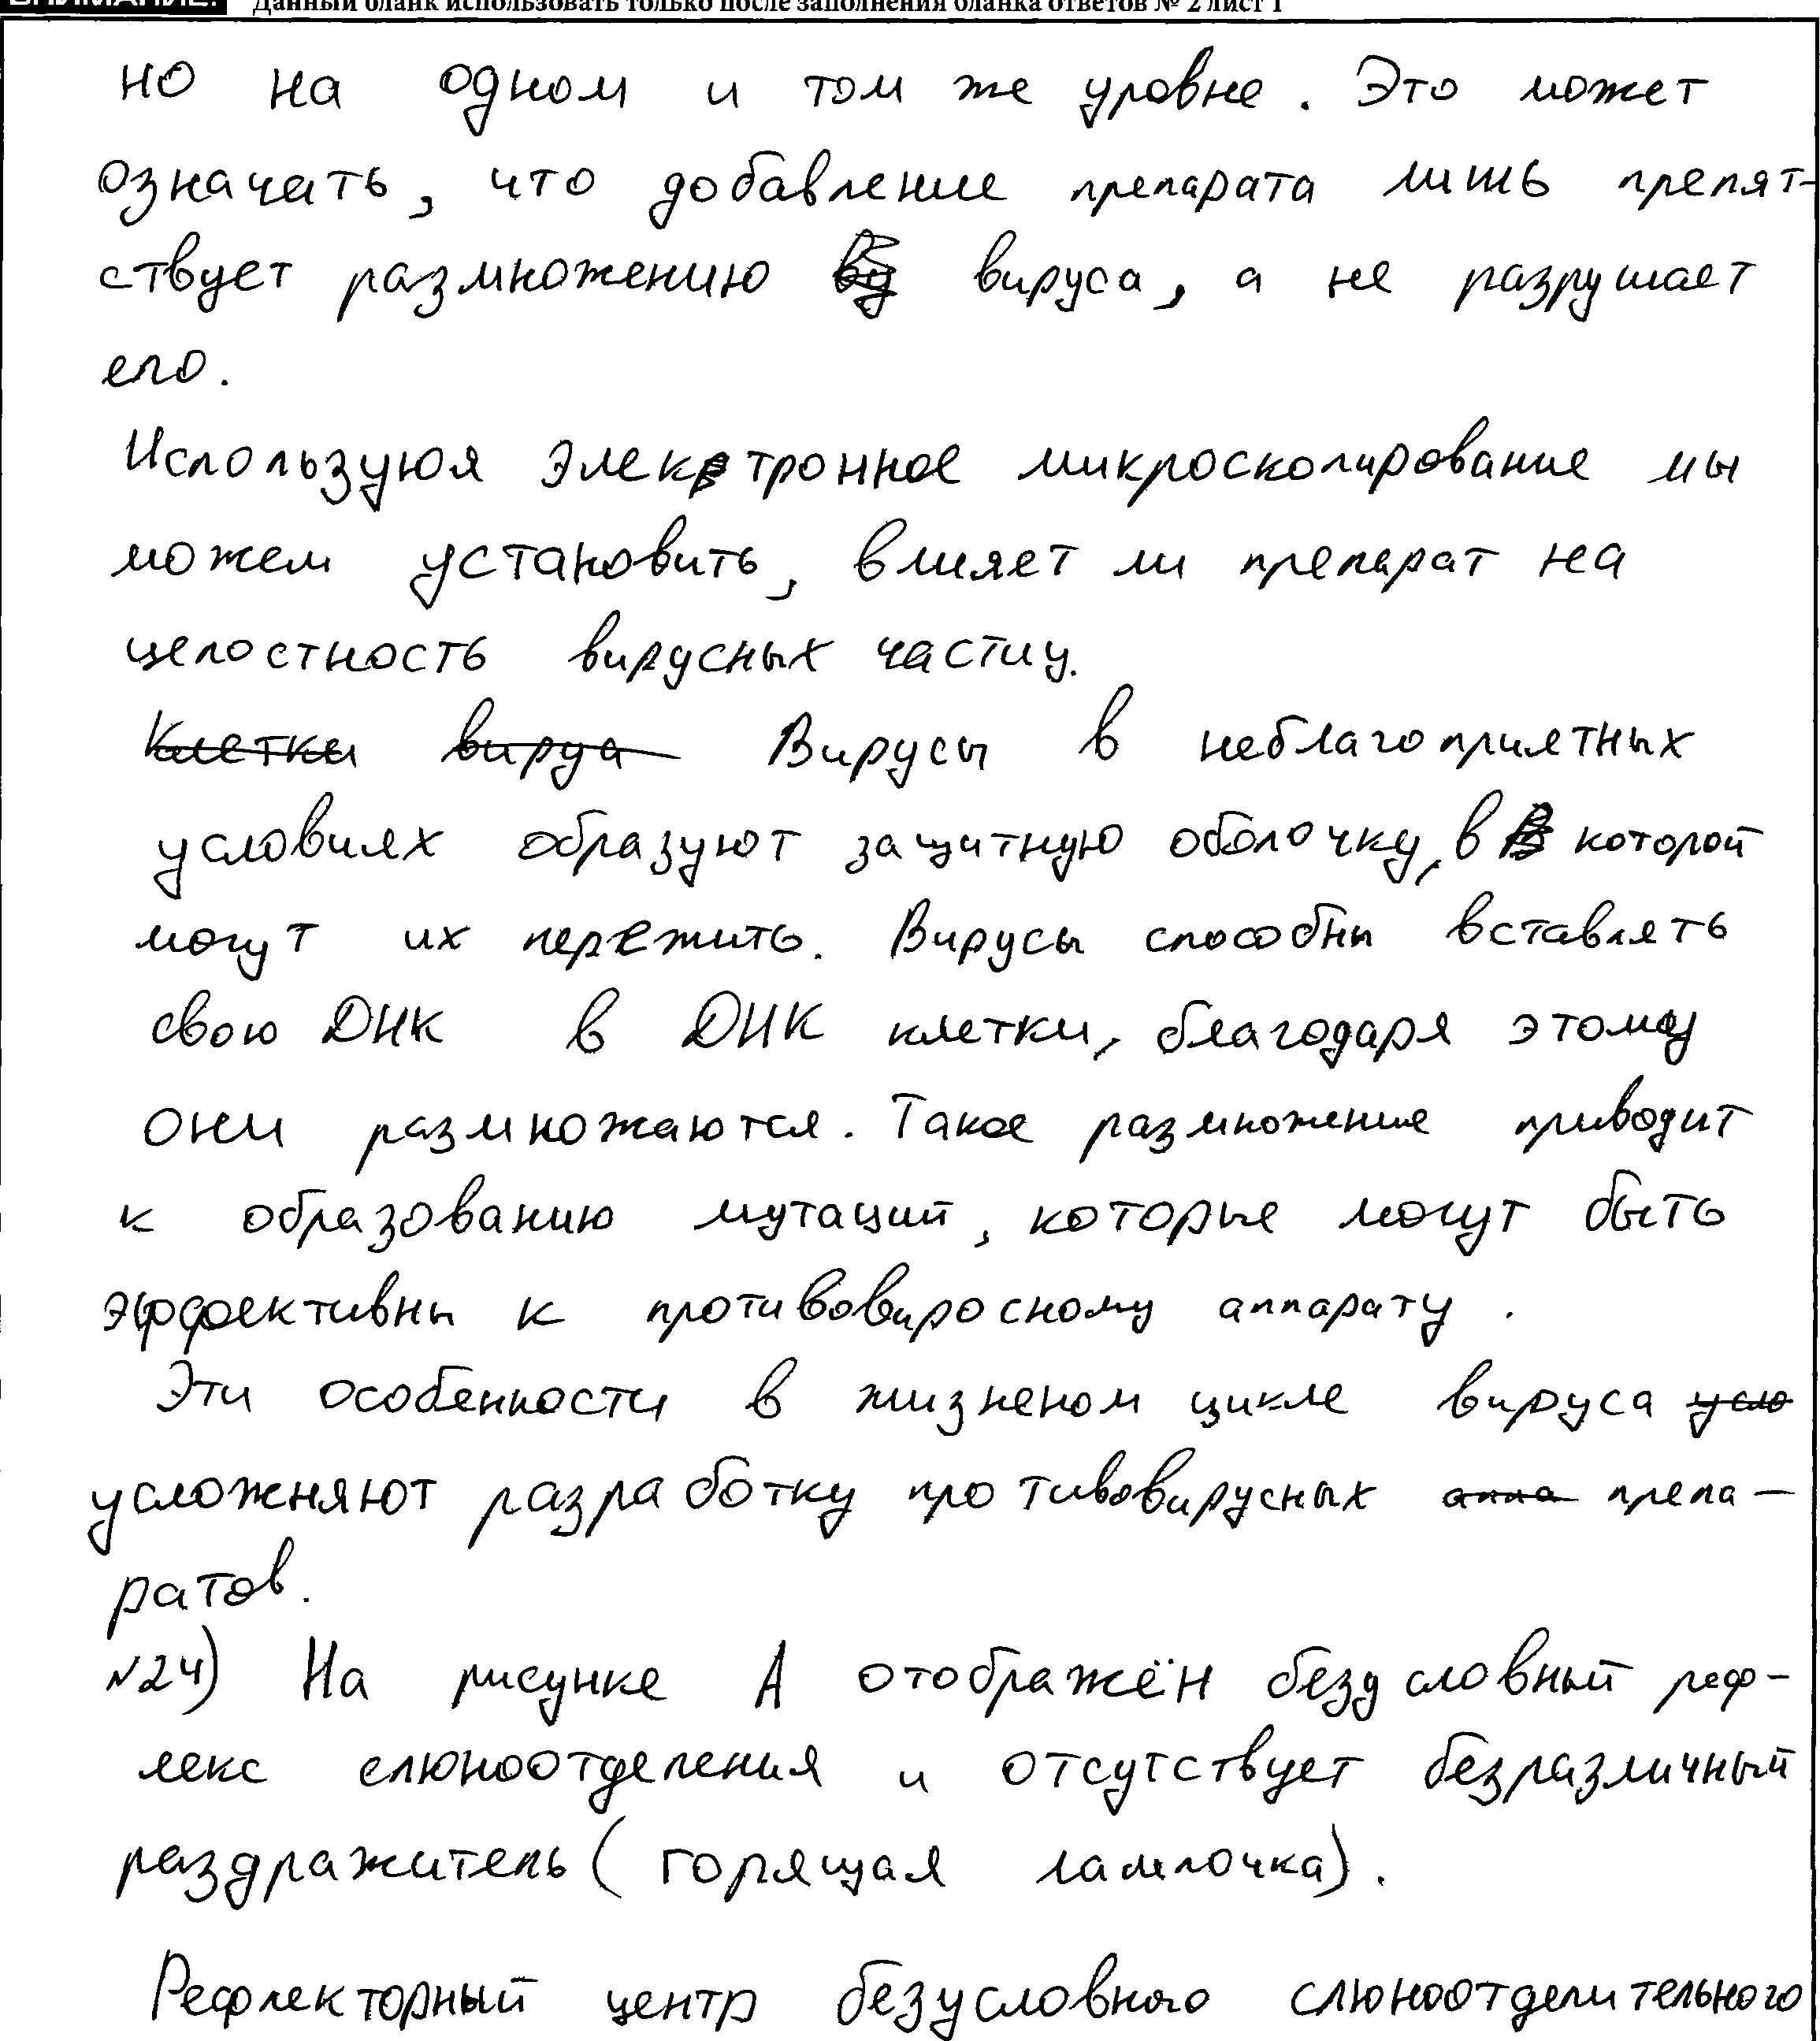 ВНИМАНИЕ! Данный бланк использовать только после заполнения бланка ответов № 2 лист 1
но на одном и том же уровне. Это может
означать, что добавление препарата лишь препят-
ствует размножению вируса, а не разрушает
его.
Используюя электронное микроскопирование мы
можем установить, влияет ли препарат на
целостность вирусных частиц.
Клетки вируа Вирусы в неблагоприятных
условиях образуют защитную оболочку, в которой
могут их пережить. Вирусы способны вставлять
свою ДНК в ДНК клетки, благодаря этому
они размножаются. Такое размножение приводит
к образованию мутаций, которые могут быть
эффективны к противовиросному аппарату.
Эти особенности в жизненом цикле вируса усло
усложняют разработку противовирусных аппа препа-
ратов.
№24) На рисунке А отображён безусловный реф-
лекс слюноотделения и отсутствует безразличный
раздражитель (горящая лампочка).
Рефлекторный центр безусловного слюноотделительного